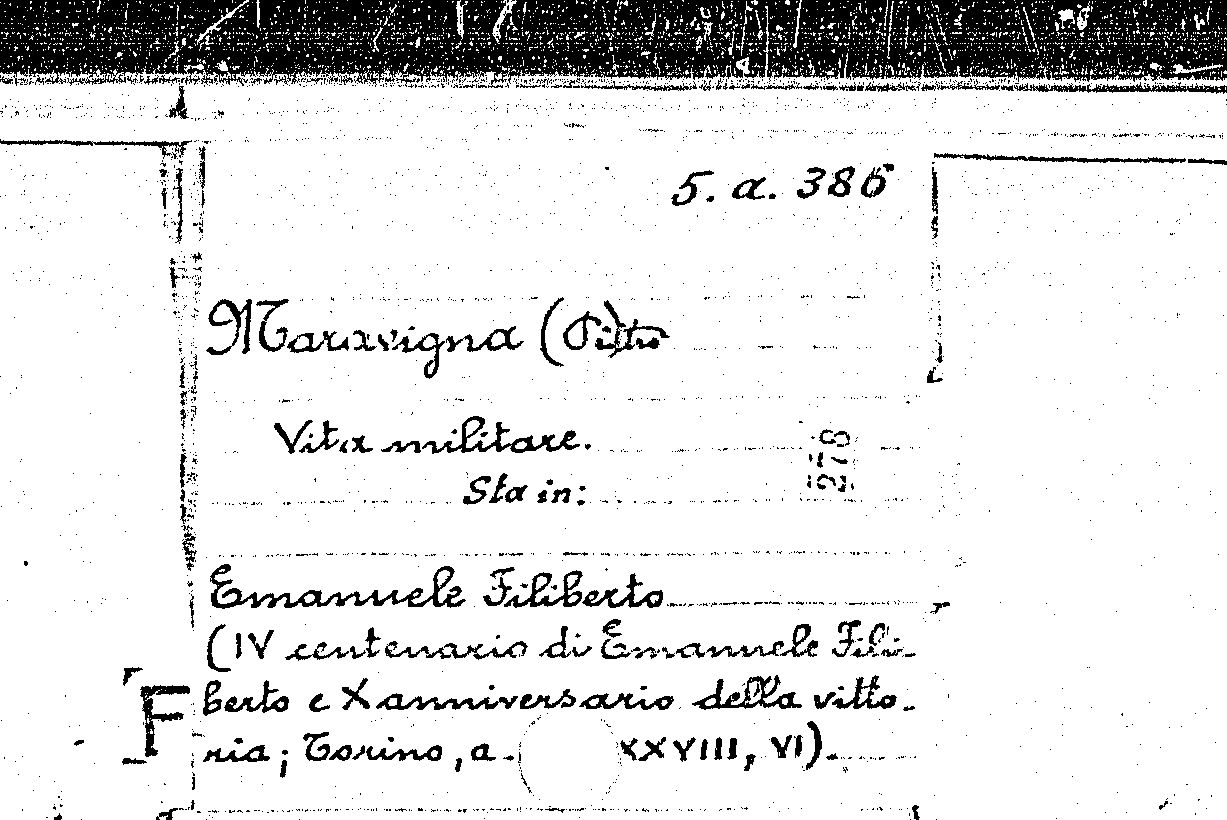 5. a. 386
Maravigna (Pietro)
Vita militare.
278
Sta in:
Emanuele Filiberto
(IV centenario di Emanuele Fili-
F
berto e X anniversario della vitto-
ria; Torino, a. XXVIII, VI).